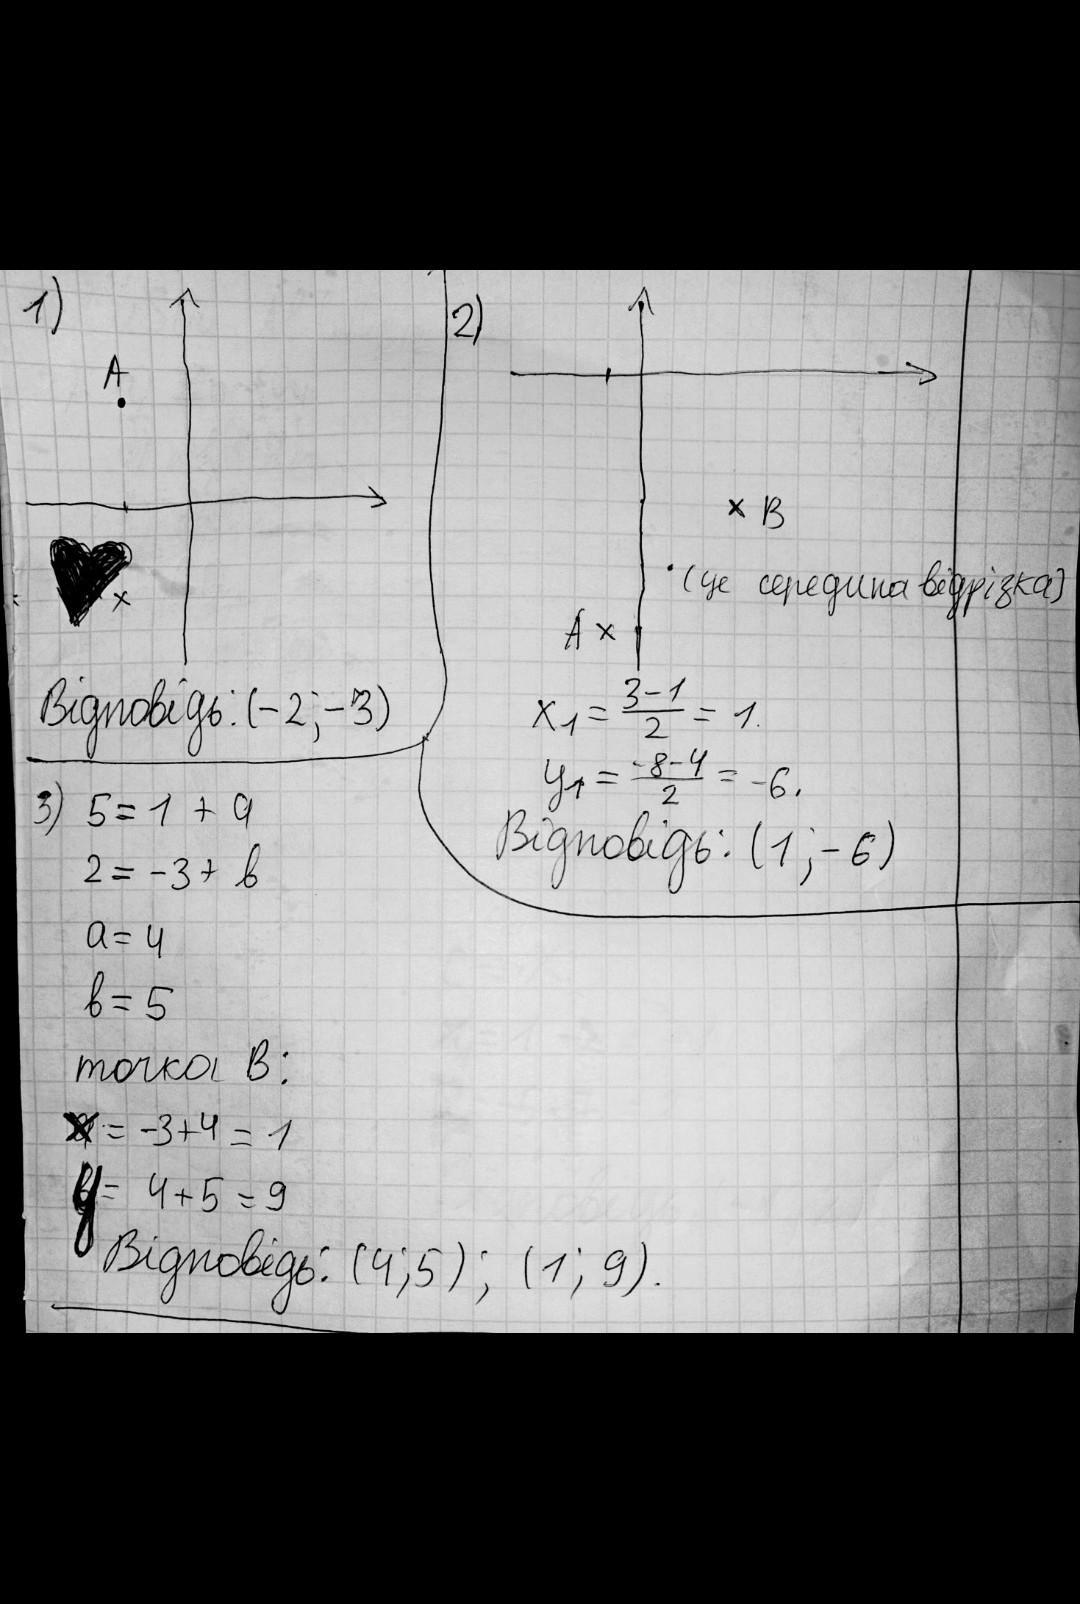 1)
A
x
Відповідь: (-2; -3)
2)
x B
(це середина відрізка)
A x
x₁ = (3-1)/2 = 1.
y₁ = (-8-4)/2 = -6.
Відповідь: (1; -6)
3) 5 = 1 + a
2 = -3 + b
a = 4
b = 5
точка B:
x = -3+4 = 1
y = 4+5 = 9
Відповідь: (4; 5); (1; 9).